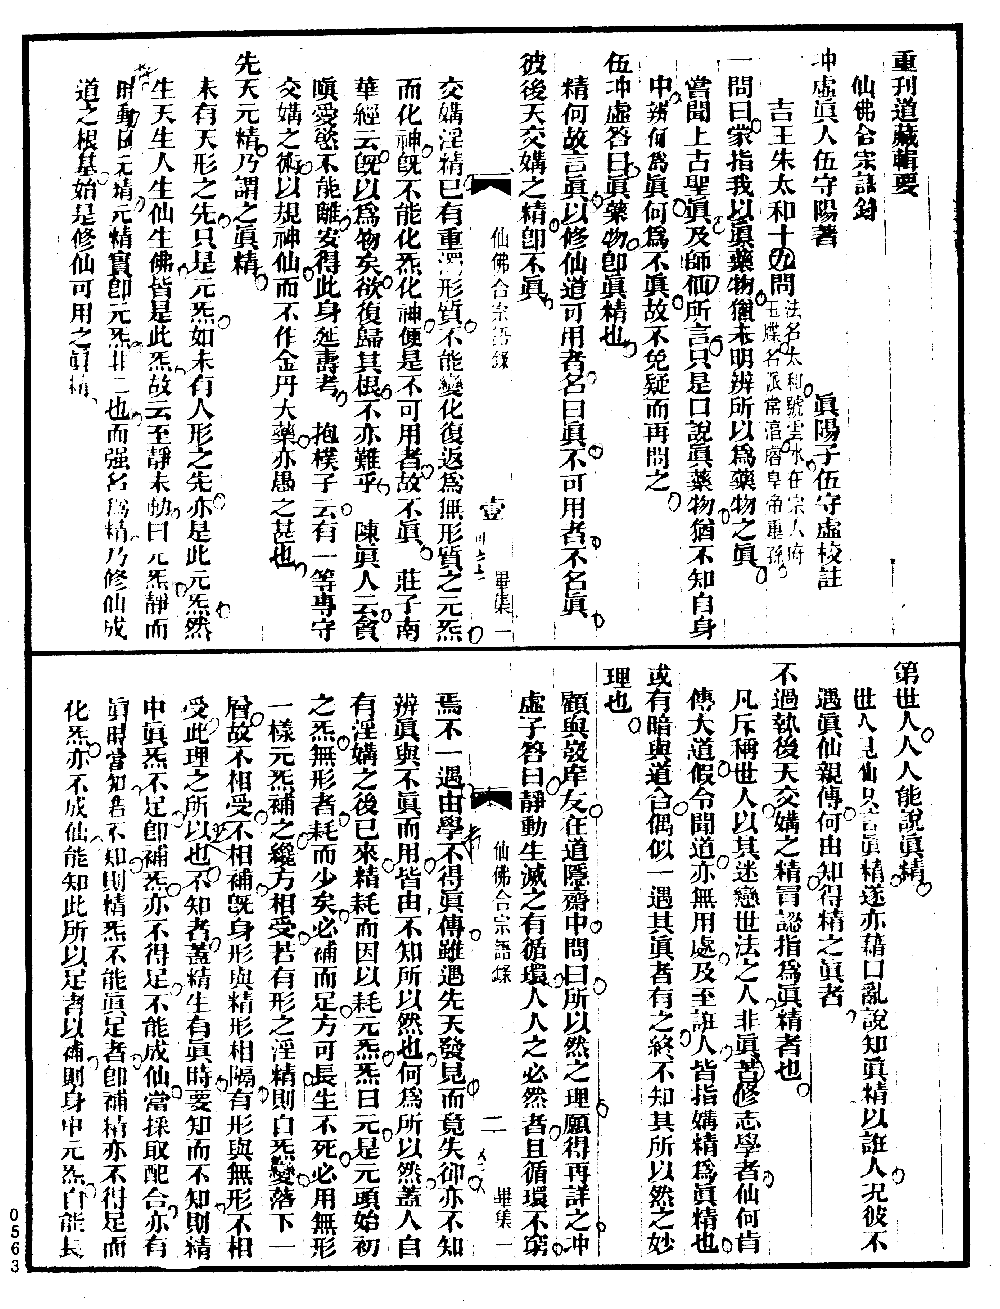 重刊道藏輯要
仙佛合宗語錄
冲虛眞人伍守陽著　眞陽子伍守虛校註
吉王朱太和十九問
法名太和號雲水在宗人府
玉牒名派常淓睿皇帝惠孫
一問曰蒙指我以眞藥物猶未明辨所以爲藥物之眞
嘗聞上古聖眞及師仙所言只是口說眞藥物猶不知自身
中辨何爲眞何爲不眞故不免疑而再問之
伍冲虛答曰眞藥物卽眞精也
精何故言眞以修仙道可用者名曰眞不可用者不名眞
彼後天交媾之精卽不眞
仙佛合宗語錄　壹　畢集一
交媾淫精已有重濁形質不能變化復返爲無形質之元炁
而化神旣不能化炁化神便是不可用者故不眞　莊子南
華經云旣以爲物矣欲復歸其根不亦難乎　陳眞人云貪
嗔愛慾不能離安得此身延壽考　抱樸子云有一等專守
交媾之術以規神仙而不作金丹大藥亦愚之甚也
先天元精乃謂之眞精
未有天形之先只是元炁如未有人形之先亦是此元炁然
生天生人生仙生佛皆是此炁故云至靜未動曰元炁靜而
時動曰元精元精實卽元炁非二也而强名爲精乃修仙成
道之根基始是修仙可用之眞精
第世人人人能說眞精
世人見仙只言眞精遂亦藉口亂說知眞精以誑人况彼不
遇眞仙親傳何由知得精之眞者
不過執後天交媾之精冐認指爲眞精者也
凡斥稱世人以其迷戀世法之人非眞苦修志學者仙何肯
傳大道假令聞道亦無用處及至誑人皆指媾精爲眞精也
或有暗與道合偶似一遇其眞者有之終不知其所以然之妙
理也
顧與發庠友在道隱齋中問曰所以然之理願得再詳之冲
虛子答曰靜動生滅之有循環人人之必然者且循環不窮
仙佛合宗語錄　二　畢集一
焉不一遇由學不得眞傳雖遇先天發見而竟失卻亦不知
辨眞與不眞而用皆由不知所以然也何爲所以然蓋人自
有淫媾之後已來精耗而因以耗元炁炁曰元是元頭始初
之炁無形者耗而少矣必補而足方可長生不死必用無形
一樣元炁補之纔方相受若有形之淫精則自炁變落下一
層故不相受不相補旣身形與精形相隔有形與無形不相
受此理之所以也不知者蓋精生有眞時要知而不知則精
中眞炁不足卽補炁亦不得足不能成仙當採取配合亦有
眞時當知若不知則精炁不能眞足者卽補精亦不得足而
化炁亦不成仙能知此所以足者以補則身中元炁自能長
0563